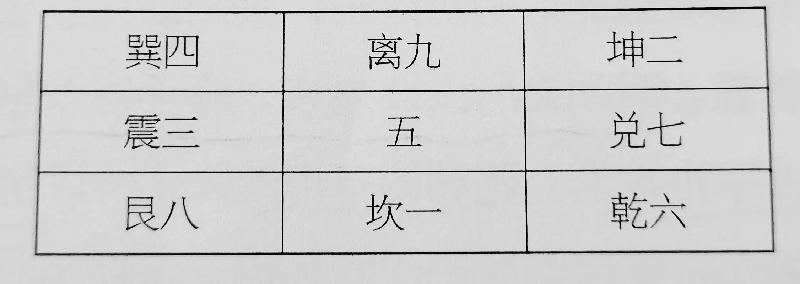 巽四 离九 坤二
震三 五 兑七
艮八 坎一 乾六